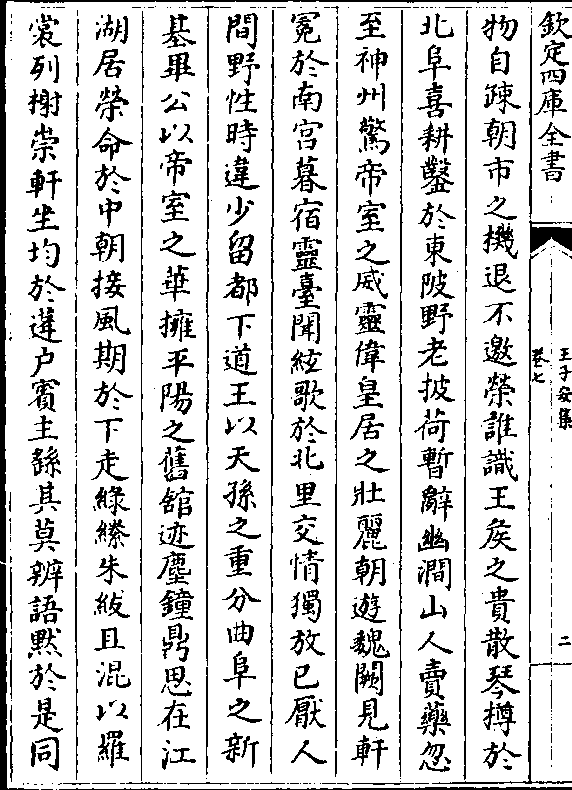 欽定四庫全書
王子安集
卷七
二
物自疎朝市之機退不邀榮誰識王侯之貴散琴樽於
北阜喜耕鑿於東陂野老披荷暫辭幽澗山人賣藥忽
至神州驚帝室之威靈偉皇居之壯麗朝遊魏闕見軒
冕於南宫暮宿靈臺聞絃歌於北里交情獨放已厭人
間野性時違少留都下道王以天孫之重分曲阜之新
基畢公以帝室之華擁平陽之舊舘迹塵鐘鼎思在江
湖居榮命於中朝接風期於下走綠縩朱紱且混以羅
裳列榭崇軒坐均於蓬户賓主繇其莫辨語黙於是同